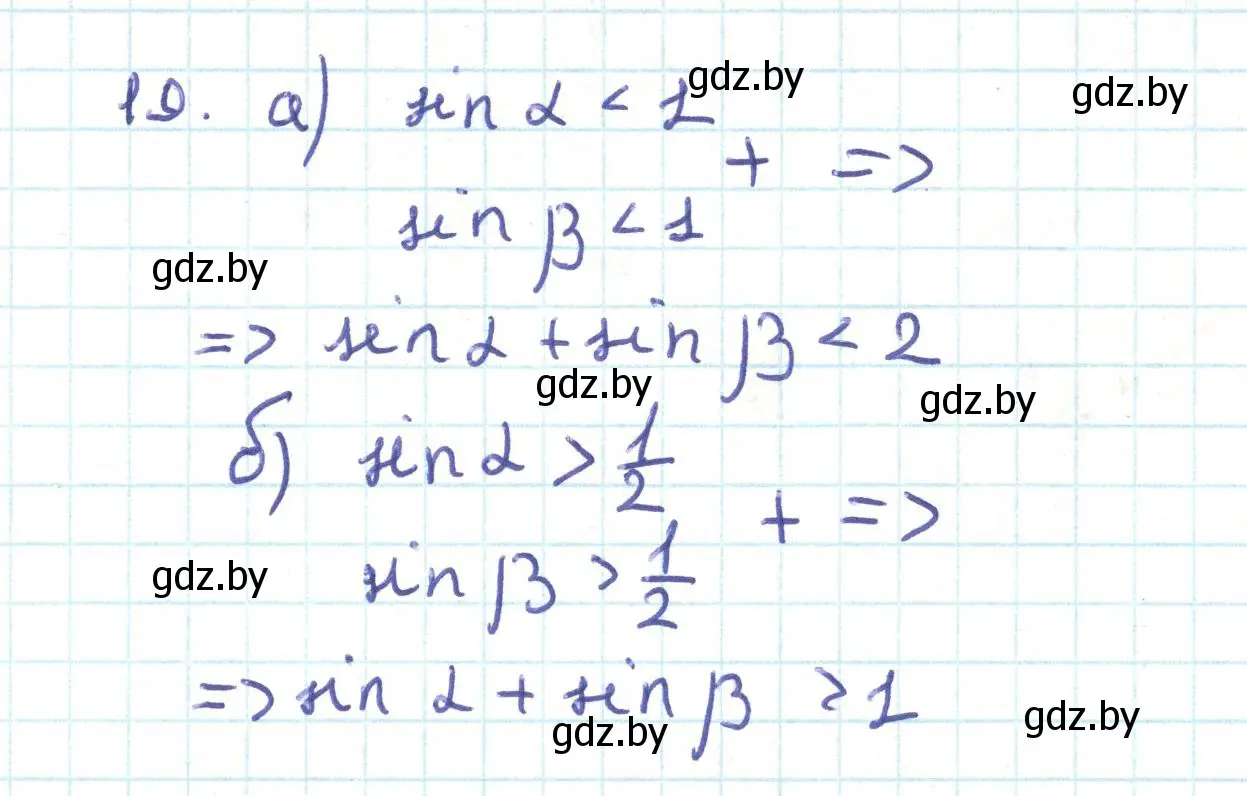 19. а) sin α < 1 gdz.by gdz.by
+ =>
sin β < 1
gdz.by
=> sin α + sin β < 2
gdz.by gdz.by
б) sin α > 1/2
+ =>
gdz.by sin β > 1/2
=> sin α + sin β > 1
gdz.by gdz.by